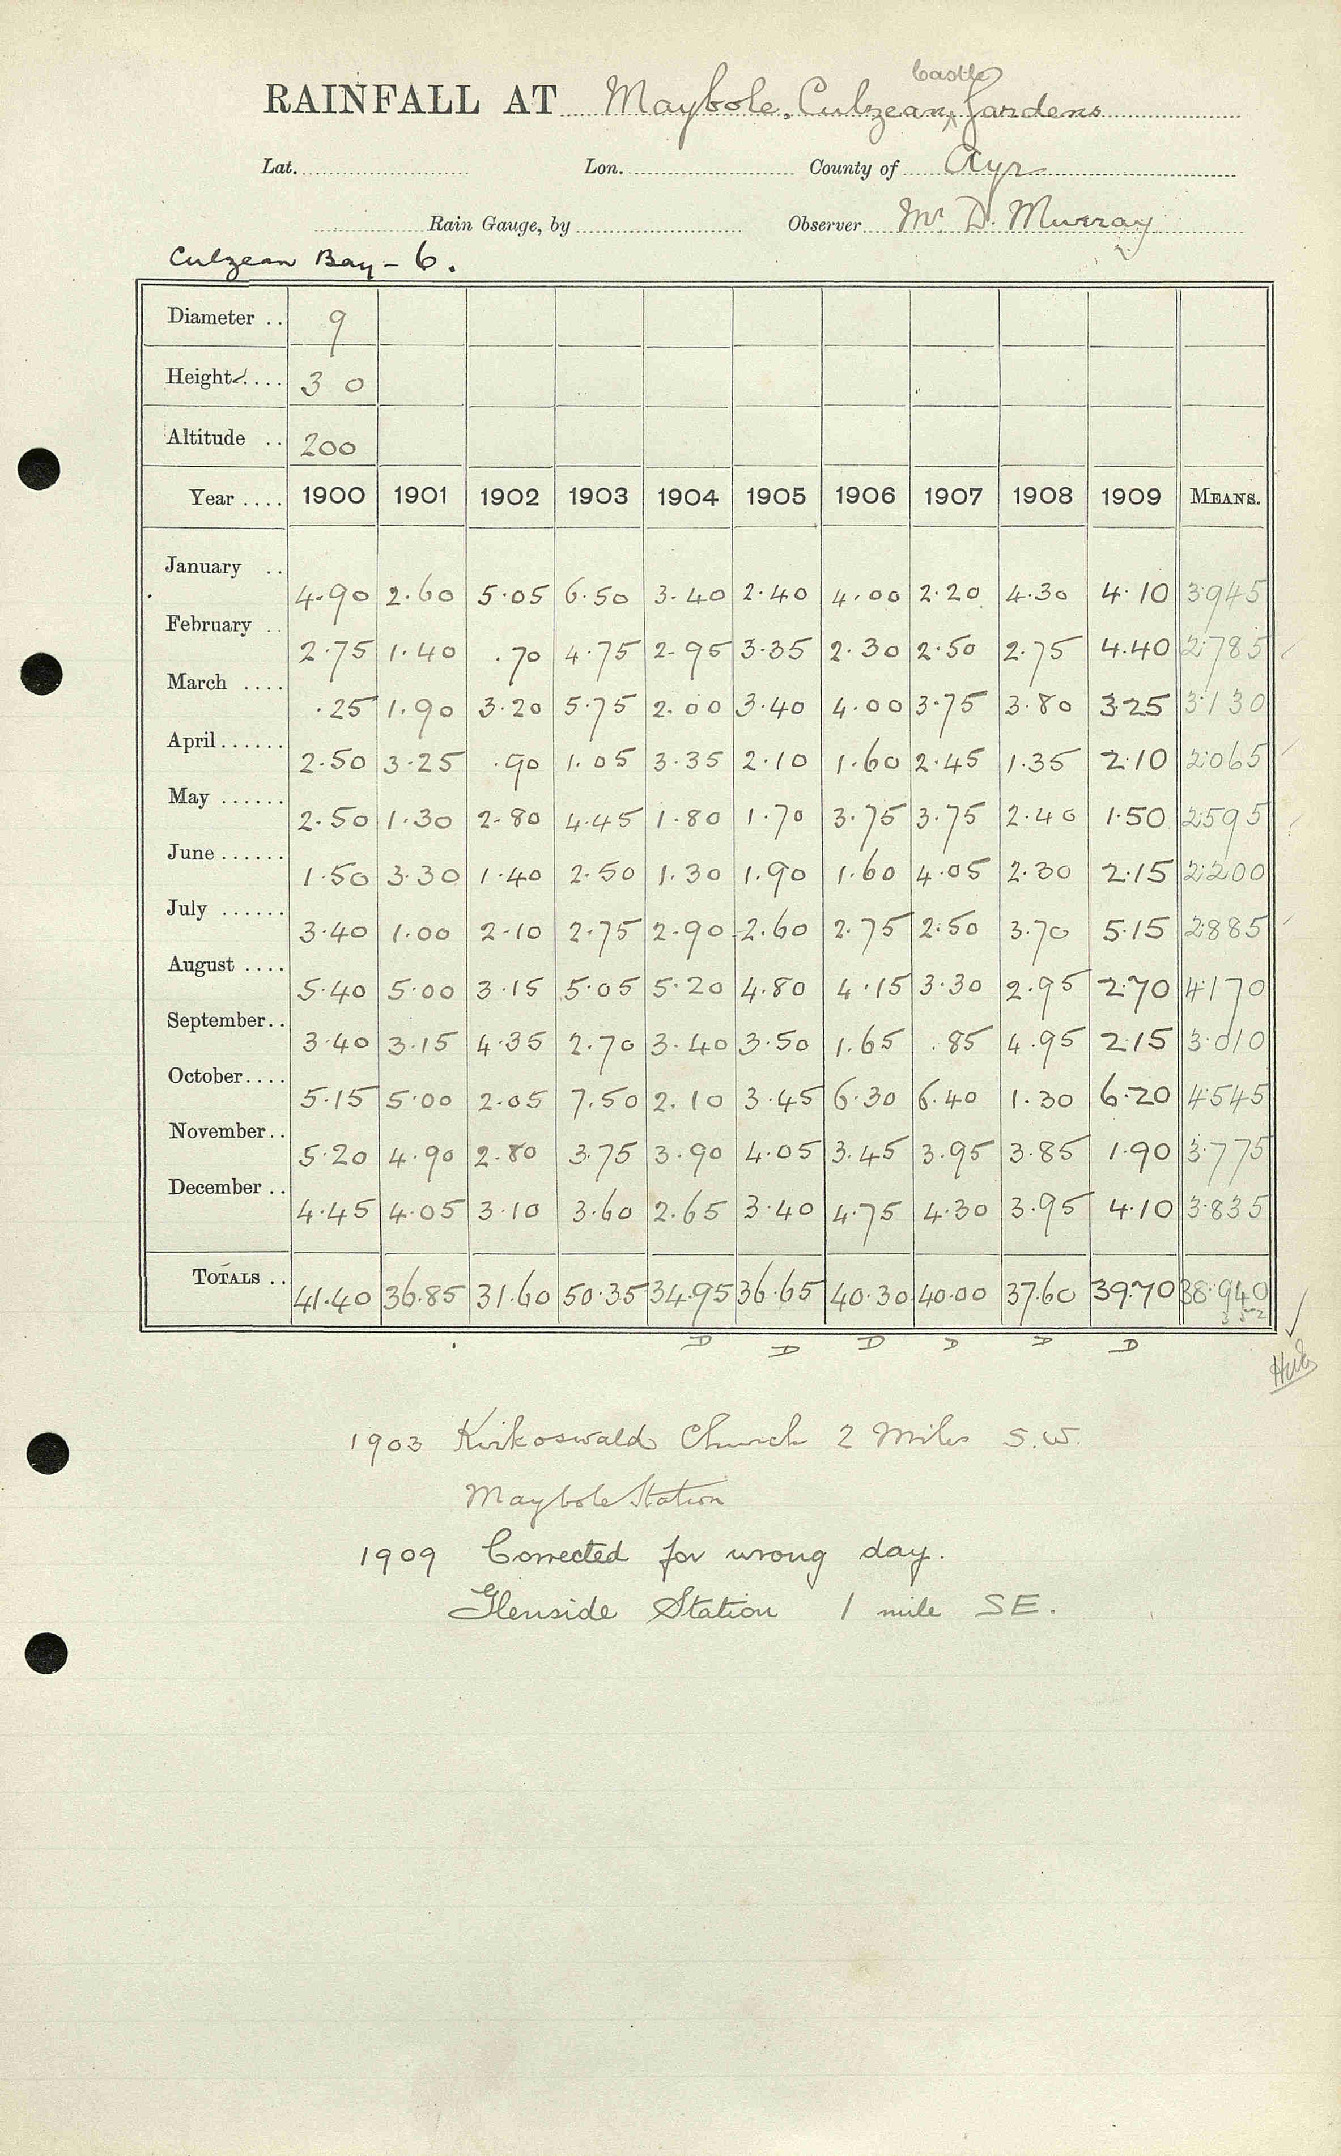 Castle
RAINFALL AT Maybole. Culzean ^ Gardens
Lat. Lon. County of Ayr
Rain Gauge, by Observer Mr. D. Murray
Culzean Bay - 6.
Diameter .. 9
Height .... 3 0
Altitude .. 200
Year .... 1900 1901 1902 1903 1904 1905 1906 1907 1908 1909 MEANS.
January .. 4.90 2.60 5.05 6.50 3.40 2.40 4.00 2.20 4.30 4.10 3.945
February .. 2.75 1.40 .70 4.75 2.95 3.35 2.30 2.50 2.75 4.40 2.785
March .... .25 1.90 3.20 5.75 2.00 3.40 4.00 3.75 3.80 3.25 3.130
April ...... 2.50 3.25 .90 1.05 3.35 2.10 1.60 2.45 1.35 2.10 2.065
May ...... 2.50 1.30 2.80 4.45 1.80 1.70 3.75 3.75 2.40 1.50 2595
June ...... 1.50 3.30 1.40 2.50 1.30 1.90 1.60 4.05 2.30 2.15 2.200
July ...... 3.40 1.00 2.10 2.75 2.90 2.60 2.75 2.50 3.70 5.15 2.885
August .... 5.40 5.00 3.15 5.05 5.20 4.80 4.15 3.30 2.95 2.70 4.170
September.. 3.40 3.15 4.35 2.70 3.40 3.50 1.65 .85 4.95 2.15 3.010
October.... 5.15 5.00 2.05 7.50 2.10 3.45 6.30 6.40 1.30 6.20 4.545
November.. 5.20 4.90 2.80 3.75 3.90 4.05 3.45 3.95 3.85 1.90 3.775
December .. 4.45 4.05 3.10 3.60 2.65 3.40 4.75 4.30 3.95 4.10 3.835
TOTALS .. 41.40 36.85 31.60 50.35 34.95 36.65 40.30 40.00 37.60 39.70 38.940
D D D D D D
1903 Kirkoswald Church 2 Miles S.W.
Maybole Station
1909 Corrected for wrong day.
Glenside Station 1 mile SE.